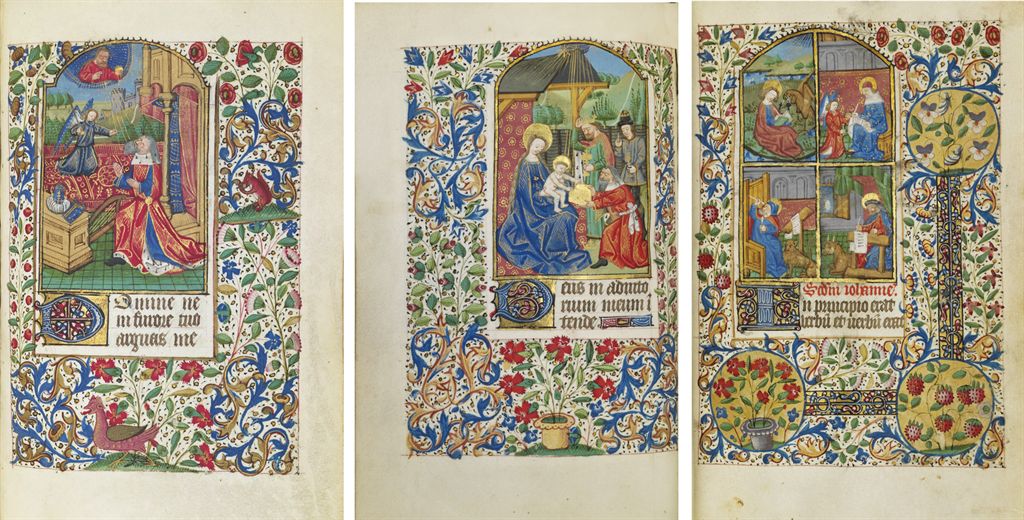 Domine ne
in furore tuo
arguas me
Deus in adiuto
rium meum i
tende
Scdm iohanne
In principio erat
verbū et verbū erat